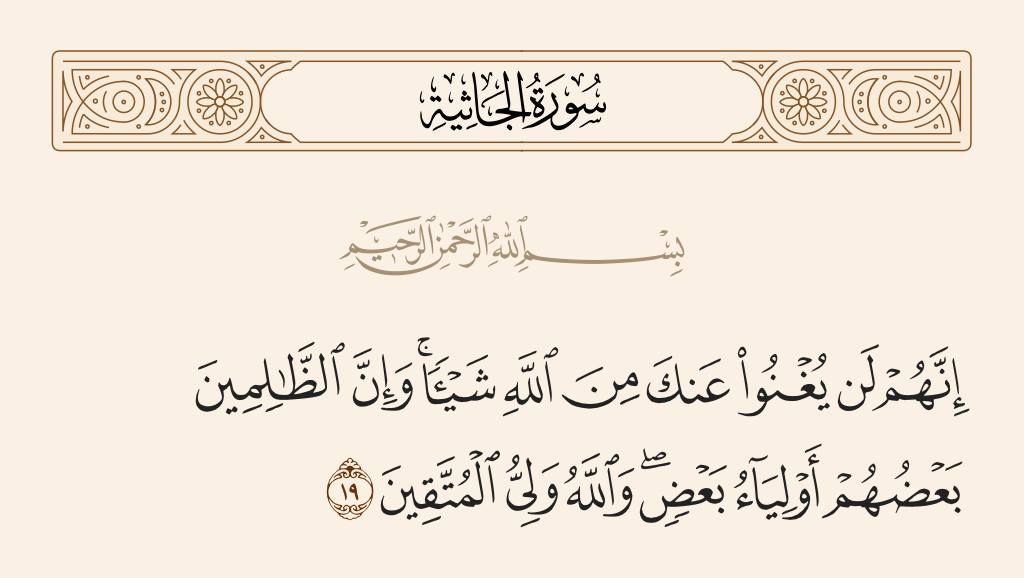 سُورَةُ الجَاثِيةِ
بِسْمِ ٱللَّهِ ٱلرَّحْمَٰنِ ٱلرَّحِيمِ
إِنَّهُمْ لَن يُغْنُوا۟ عَنكَ مِنَ ٱللَّهِ شَيْـًٔا ۚ وَإِنَّ ٱلظَّـٰلِمِينَ
بَعْضُهُمْ أَوْلِيَآءُ بَعْضٍ ۖ وَٱللَّهُ وَلِىُّ ٱلْمُتَّقِينَ ١٩